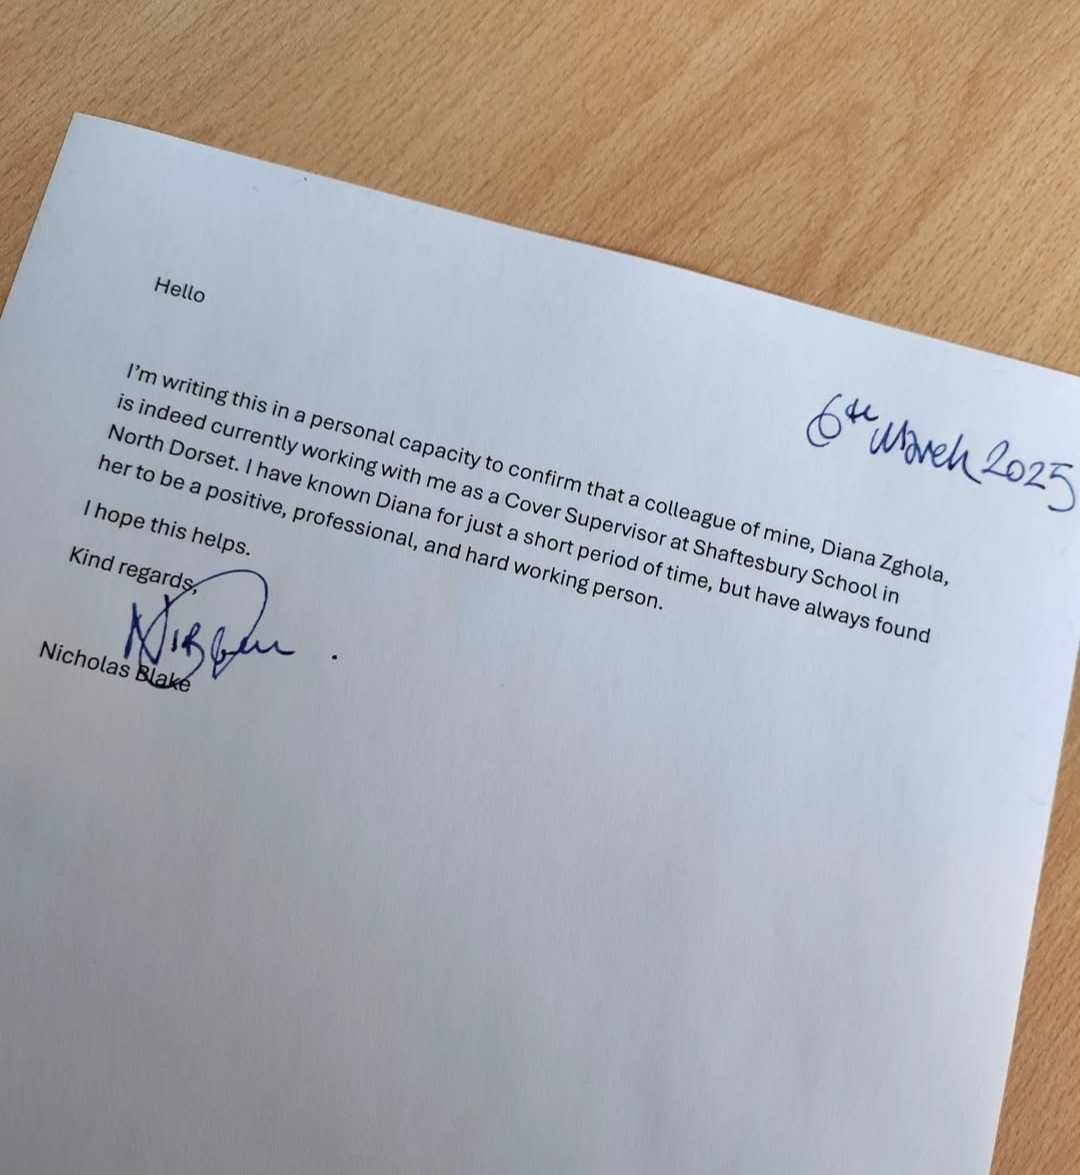 Hello
6th March 2025
I'm writing this in a personal capacity to confirm that a colleague of mine, Diana Zghola,
is indeed currently working with me as a Cover Supervisor at Shaftesbury School in
North Dorset. I have known Diana for just a short period of time, but have always found
her to be a positive, professional, and hard working person.
I hope this helps.
Kind regards,
Nicholas Blake